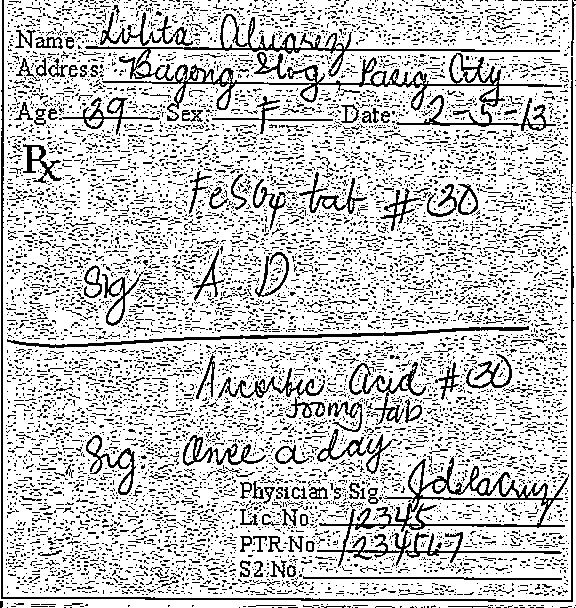 Name: Lolita Alvarez
Address: Bagong Ilog, Pasig City
Age: 39 Sex: F Date: 2-5-13
Rx
FeSO4 tab #30
Sig A D
Ascorbic Acid #30
tab
Sig. Once a day
Physician's Sig. J dela Cruz
Lic. No. 12345
PTR No. 1234567
S2 No.